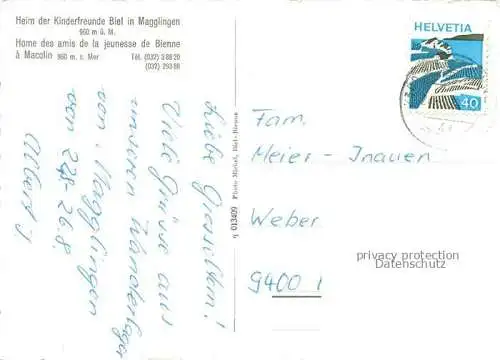 Heim der Kinderfreunde Biel in Magglingen
960 m ü. M.
Home des amis de la jeunesse de Bienne
à Macolin 960 m. s. Mer Tél. (032) 3 88 20
(032) 2 93 88
Liebe Grosseltern!
Viele Grüsse aus
unserem Wanderlager
von Magglingen
von 22.8-26.8.
Albert J
q 013409 Photo Michel, Biel-Bienne
HELVETIA
40
Fam.
Meier-Inauen
Weber
9400
privacy protection
Datenschutz